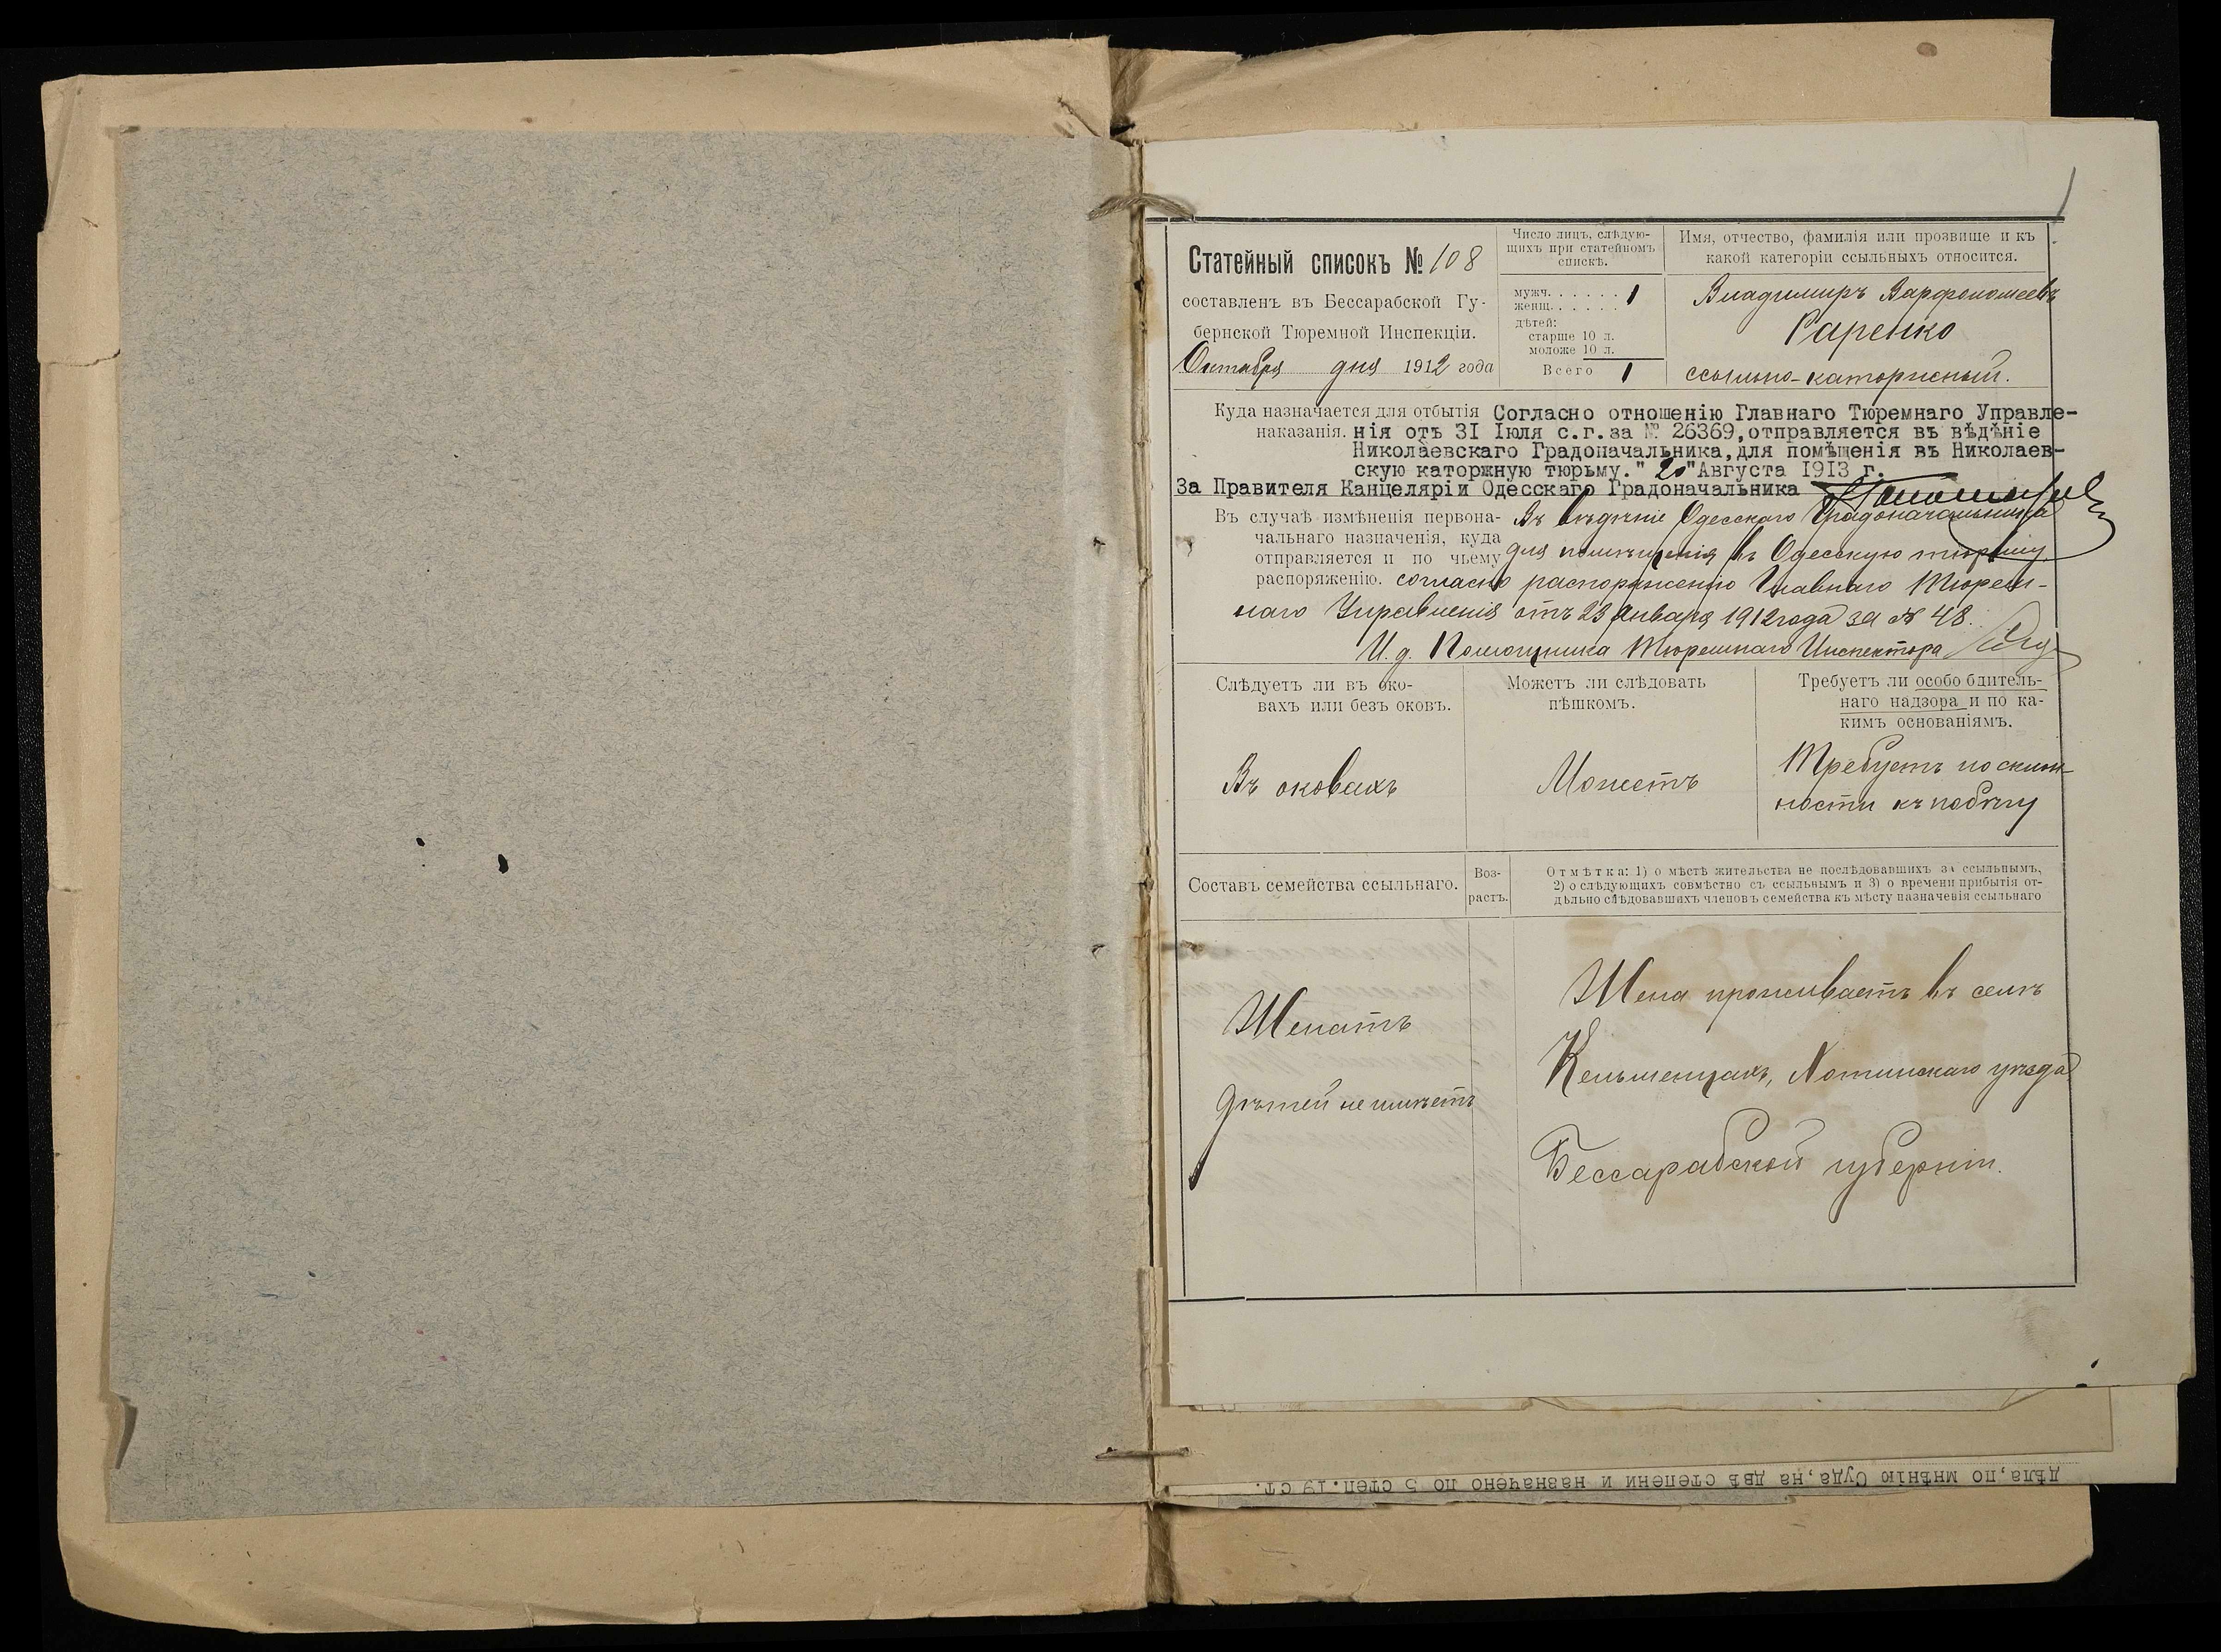 Статейный списокъ № 108
составленъ въ Бессарабской Гу-
бернской Тюремной Инспекціи.
Октября дня 1912 года
Число лицъ, слѣдую-
щихъ при статейномъ
спискѣ.
мужч. . . . . . 1
женщ. . . . . .
дѣтей:
старше 10 л.
моложе 10 л.
Всего 1
Имя, отчество, фамилія или прозвище и къ
какой категоріи ссыльныхъ относится.
Владимиръ Варфоломеевъ
Раренко
ссыльно-каторжный.
Куда назначается для отбытія Согласно отношенію Главнаго Тюремнаго Управле-
наказанія. нія отъ 3I Іюля с.г.за № 26369,отправляется въ вѣдѣніе
Николаевскаго Градоначальника,для помѣщенія въ Николаев-
скую каторжную тюрьму." 20 "Августа I9I3 г.
За Правителя Канцеляріи Одесскаго Градоначальника
Въ случаѣ измѣненія первона- Въ вѣдѣніе Одесскаго Градоначальника
чальнаго назначенія, куда
отправляется и по чьему для помѣщенія въ Одесскую тюрьму,
распоряженію. согласно распоряженію Главнаго Тюрем-
наго Управленія отъ 23 Января 1912 года за № 48.
И. д. Помощника Тюремнаго Инспектора
Слѣдуетъ ли въ око-
вахъ или безъ оковъ.
Въ оковахъ
Можетъ ли слѣдовать
пѣшкомъ.
Можетъ
Требуетъ ли особо бдитель-
наго надзора и по ка-
кимъ основаніямъ.
Требуетъ по склон-
ности къ побѣгу
Составъ семейства ссыльнаго.
Воз-
растъ.
Отмѣтка: 1) о мѣстѣ жительства не послѣдовавшихъ за ссыльнымъ,
2) о слѣдующихъ совмѣстно съ ссыльнымъ и 3) о времени прибытія от-
дѣльно слѣдовавшихъ членовъ семейства къ мѣсту назначенія ссыльнаго
Женатъ
дѣтей не имѣетъ
Жена проживаетъ въ селѣ
Кельменцахъ, Хотинскаго уѣзда
Бессарабской губерніи.
дѣла,по мнѣнію Суда,на двѣ степени и назначено по 5 степ.19 ст.